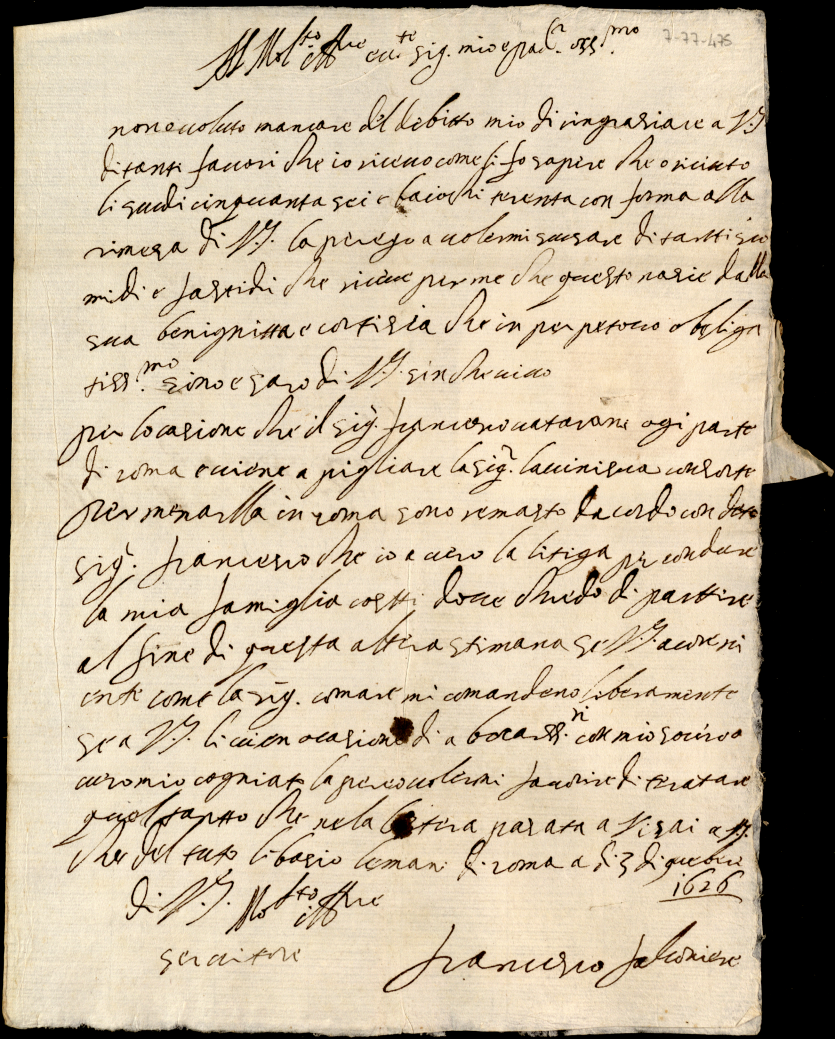 7-77-475
Al Mol.to ill.re ecc.te sig. mio e pad.
non e voluto mancare del debitto mio di ringrasiare a V.S.
di tanti favori che io ricevo come li fo sapere che o ricivto
li scudi cinquanta sei e baiochi terenta con forma alla
rimesa di V.S. la perego a volermi scusare di tantti
midi e fastidi che riceve per me che questo nasie dalla
sua benignitta e cortisia che in perpetovo obeliga
tiss.mo sono e saro di V.S. sin che vivo
per locasione che il sig.r francesco ogi parte
di roma e viene a pigliare la sig.ra consorte
per menarlla in roma sono remasto dacordo con
sig.r francesco che io la litiga per condure
la mia famiglia costti dove chredo di parttire
al fine di questa altera stimana se V.S.
come la sig. comare mi comandeno liberamente
se a V.S. li vien ocasione di a bocarssi con mio socero o
vero mio cogniato la pereo volermi favorire di teratare
quel tantto che nela letera pasata a V.S.
che del tuto li basio le mani di roma a di 3 di
1626
di V.S. Mol.to ill.re
servitore
francesco falconiere